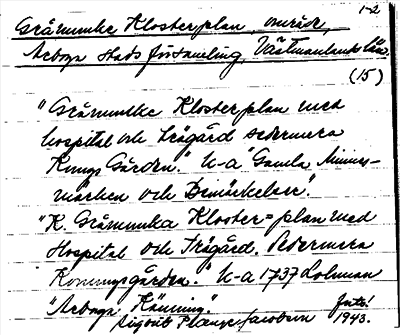 1-2
Gråmunke Klosterplan område,
Arboga stads församling, Västmanlands län.
(15)
"Gråmunke Klosterplan med
hospital och trägård sedermera
Kungs Gården." U-a "Gamla Minnes-
märken och Benämkelser".
"K. Gråmunka Kloster=plan med
Hospital och Trägård. Sedermera
Konungsgården." U-a 1737 Lohman
"Arboga Känning."
Jacobson 1943.